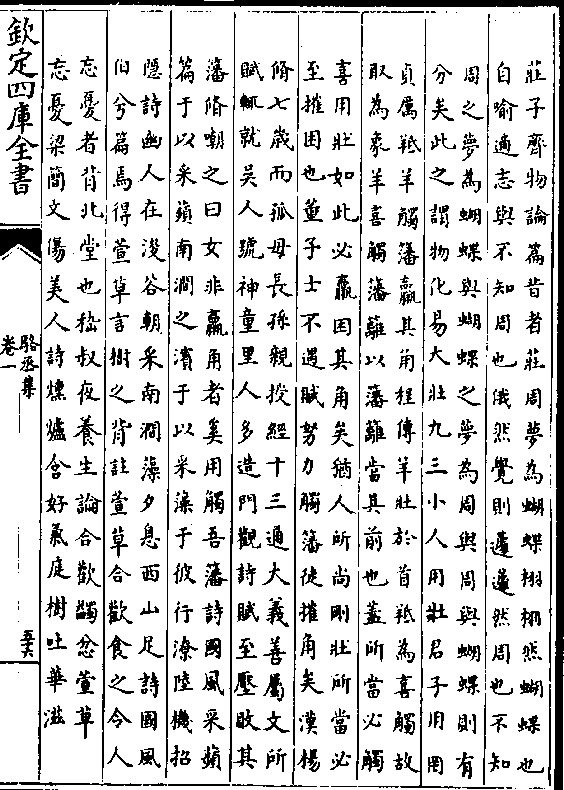 莊子齊物論篇昔者莊周夢為蝴蝶栩栩然蝴蝶也
自喻適志與不知周也俄然覺則蘧蘧然周也不知
周之夢為蝴蝶與蝴蝶之夢為周與周與蝴蝶則有
分矣此之謂物化易大壯九三小人用壯君子用罔
貞厲羝羊觸藩羸其角程傳羊壯於首羝為喜觸故
取為象羊喜觸藩離以藩離當其前也蓋所當必觸
喜用壯如此必羸困其角矣猶人所尚剛壯所當必
至摧困也董子士不遇賦努力觸藩徒摧角矣漢楊
脩七歲而孤母長孫親授經十三通大義善屬文所
賦輒就吳人號神童里人多造門觀詩賦至壓敗其
藩脩嘲之曰女非羸角者奚用觸吾藩詩國風采蘋
篇于以采蘋南澗之濱于以采藻于彼行潦陸機招
隱詩幽人在浚谷朝采南澗藻夕息西山足詩國風
伯兮篇焉得萱草言樹之背註萱草合歡食之令人
忘憂者背北堂也嵇叔夜養生論合歡蠲忿萱草
忘憂梁簡文傷美人詩燻爐含好氣庭樹吐華滋
欽定四庫全書
駱丞集
卷一
五六